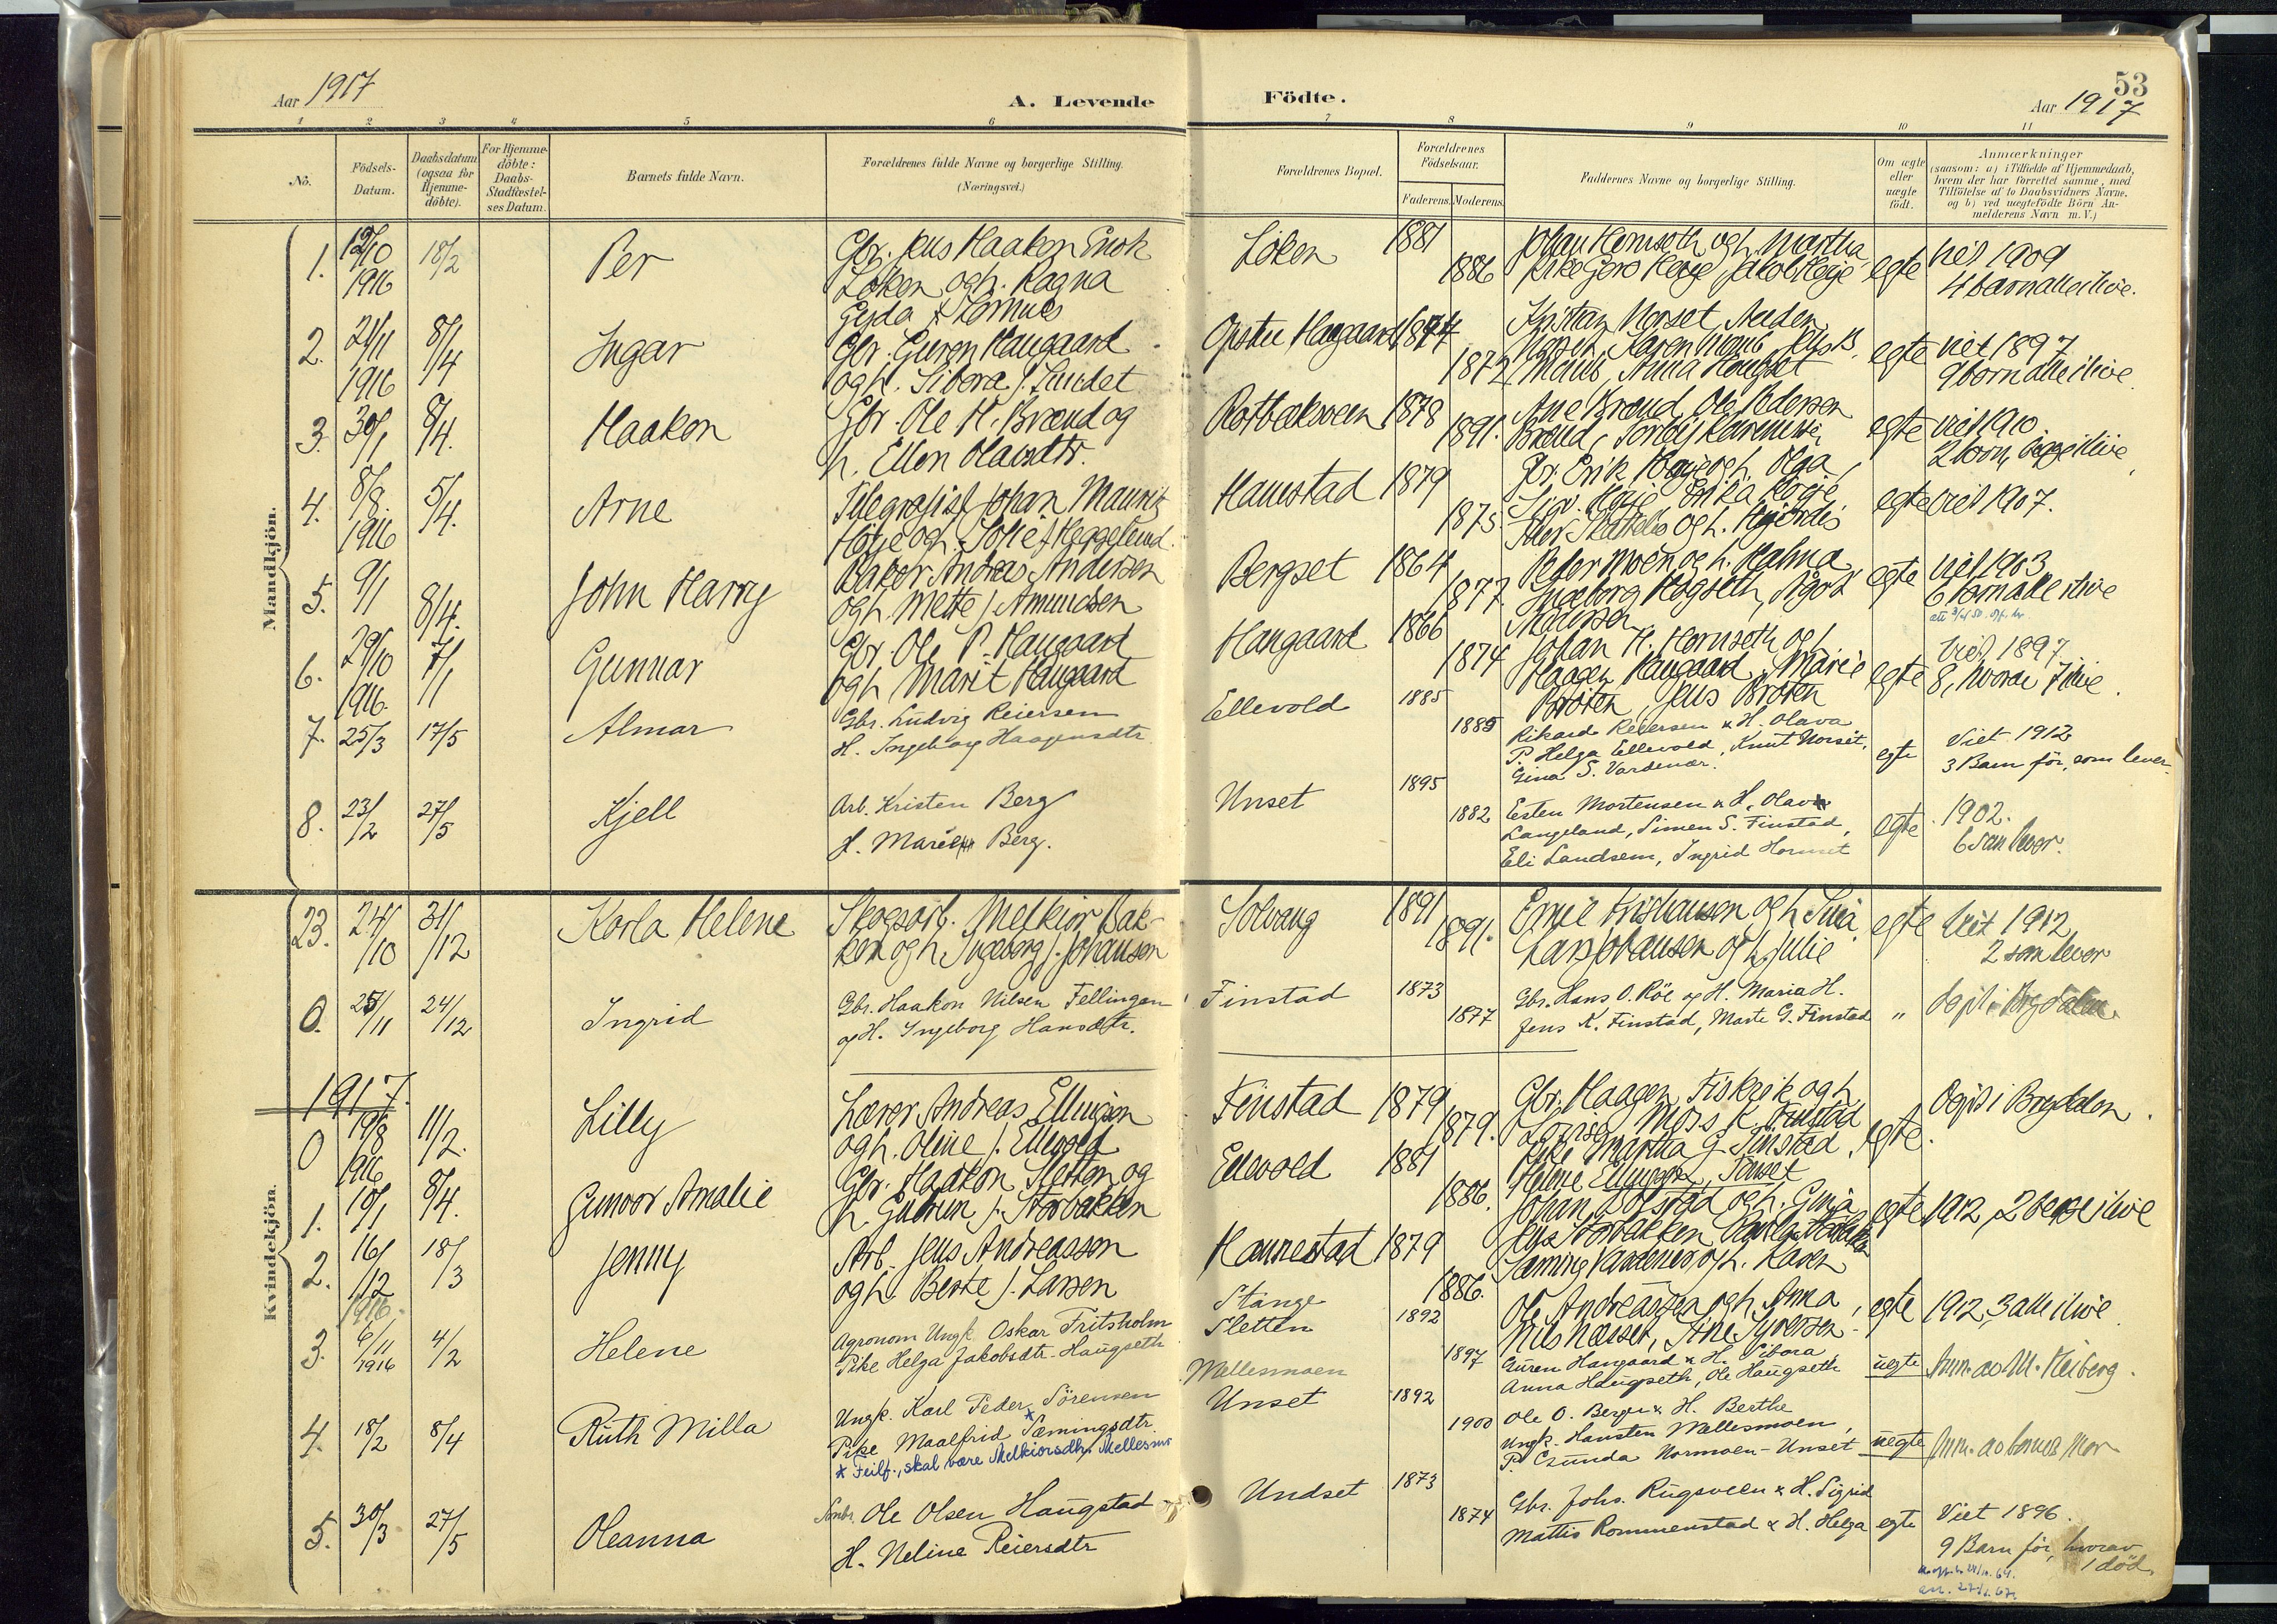 53
Aar 1917
A. Levende
Födte.
Aar 1917
1 2 3 4 5 6 7 8 9 10 11
No.
Födsels-Datum.
Daabsdatum (ogsaa for Hjemme-döbte).
For Hjemme-döbte: Daabs-Stadfæstel-ses Datum.
Barnets fulde Navn.
Forældrenes fulde Navne og borgerlige Stilling.
(Næringsvei.)
Forældrenes Bopæl.
Forældrenes Födselsaar.
Faderens. Moderens.
Faddernes Navne og borgerlige Stilling.
Om ægte eller uægte födt.
Anmærkninger
(saasom: a) i Tilfælde af Hjemmedaab, hvem der har forrettet samme, med Tilföielse af to Daabsvidners Navne. og b) ved uægtefödte Börn Anmelderens Navn m. V.)
Mandkjön.
1. 12/10 1916 18/2 Per
Gbr. Jens Haakon Enok
Löken og h. Ragna
Gyda
Löken 1881 1886
Johan Hornseth og h. Martha
egte viet 1909
4 barn alle ilive.
2. 21/11 1916 8/4 Ingar
Gbr. Guren Haugaard
og h. Sibora f. Lundet
Opstu Haugaard 1874 1872
Kristian Norset,
egte viet 1897
9 born alle ilive.
3. 30/1 8/4. Haakon
Gbr. Ole H. Brænd og
h. Ellen Olavsdtr.
Rotbækveen 1878 1891.
Ane Brænd, Ole Pedersen
Brænd,
egte viet 1910
2 born, begge ilive
4. 8/8. 1916 5/4. Arne
Telegrafist Johan Mauritz
Hoije og h. Sofie f. Heggelund.
Hanestad 1879 1875
Gbr. Erik Hoije og h. Olga,
og h. Hjördis
egte viet 1907.
5. 9/1 8/4. John Harry
Baker Andreas Andersen
og h. Mette f. Amundsen
Bergset 1864 1877
Peder Moen og h. Halma,
Ingeborg Högseth, Ågot
egte viet 1903
6 born alle ilive
6. 29/10 1916. 7/1 Gunnar
Gbr. Ole P. Haugaard
og h. Marit Haugaard
Haugaard 1866 1874
Johan H. Hornseth og h.
Haagen Haugaard, Marie
Bröten, Jens Bröten
egte Viet 1897
8, hvorav 7 ilive.
7. 25/3 17/5 Almar
Gbr. Ludvig Reiersen
H. Ingeborg Haagensdtr
Ellevold 1885 1885
Rikard Reiersen & H. Olava
P. Helga Ellevold, Knut Norset,
Gina S. Vardenær.
egte Viet 1912
3 Barn för, som lever
8. 23/2 27/5 Kjell
Arb. Kristen Berg
H. Marie Berg.
Unset 1895 1882
Esten Mortensen & H. Olava
Langeland, Simen S. Finstad,
Eli Landsem, Ingrid Hornset
egte 1902.
6 som lever.
Kvindekjön.
23. 24/10 31/12 Karla Helene
Skogsarb. Melkior Bak-
ken og h Ingeborg f. Johansen
Solvang 1891 1891.
Emil Kristiansen og h
Lars Johansen og h Julie
egte Viet 1912
2 som lever
0. 25/11 24/12 Ingrid
Gbr. Haakon Nilsen Fellingen
og H. Ingeborg Hansdtr.
Finstad 1873 1877
Gbr. Hans O. Röe og H. Maria H.
Jens K. Finstad, Marte G. Finstad
"
1917.
0 19/8 1916 11/2. Lilly
Lærer Andreas Ellingsen
og h. Oline f. Ellevold
Finstad 1879 1879.
Gbr. Haagen Fiskvik og h.
Pike Martha G. Finstad,
Helene Ellingsen, Tönset
egte. Dögt i Brydalen.
1. 10/1 8/4. Gunvor Amalie
Gbr. Haakon Sletten og
h. Gudrun f. Storbakken
Ellevold 1881 1886.
Johan Bolstad og h. Gina
Jens Storbakken
egte 1912, 2 begge ilive
2. 16/12 1916. 18/3 Jenny
Arb. Jens Andreasson
og h. Berte f. Larsen
Hannestad 1879 1886.
Sæming Vardenær og h. Karen
Ole Andreassen og h. Anna,
Nils Næsset, Stine Syversen
egte 1912, 3 alle ilive
3. 6/11 1916 4/2 Helene
Agronom Ungk. Oskar Fritsholm
Pike Helga Jakobsdtr. Haugseth
Stange
Sletten 1892 1897
Guren Haugaard & H. Sibora,
Anna Haugseth, Ole Haugseth
uegte Anm. av M. Heiberg.
4. 18/2 8/4 Ruth Milla
Ungk. Karl Peder Sörensen
Pike Maalfrid * Sæmingsdtr.
* Feilf., skal være Melkiorsdtr, Mellesmo
Mellesmoen
Unset 1892 1900
Ole O. Berger & H. Berthe
Ungk. Hansten Mellesmoen,
P. Gunda Normoen-Unset
uegte Anm. av barnets Mor
5. 30/3 27/5 Oleanna
Smbr. Ole Olsen Haugstad
H. Neline Reiersdtr
Undset 1873 1874
Gbr. Johs. Rugsveen & H. Sigrid
Mattis Rommenstad & H. Helga
egte Viet 1896.
9 Barn för, hvorav
1 död.